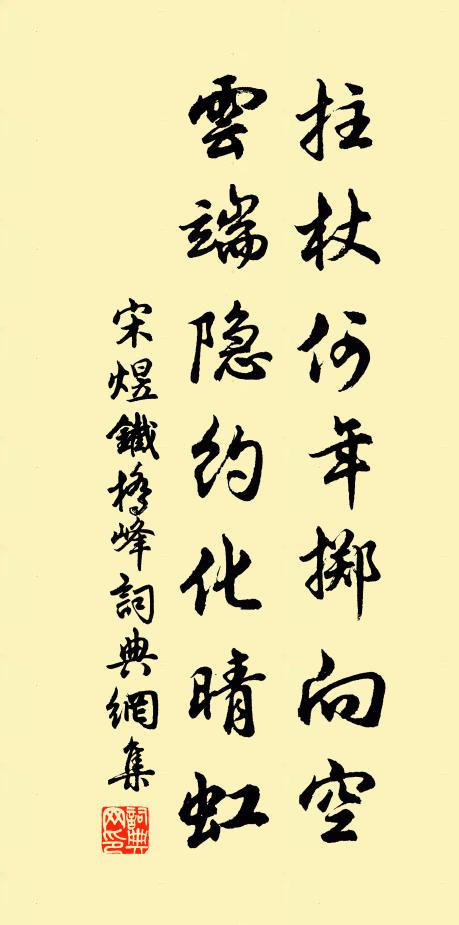 拄杖何年掷向空
雲端隐约化晴虹
宋煜鐵橋峰詞典網集
詞典网印